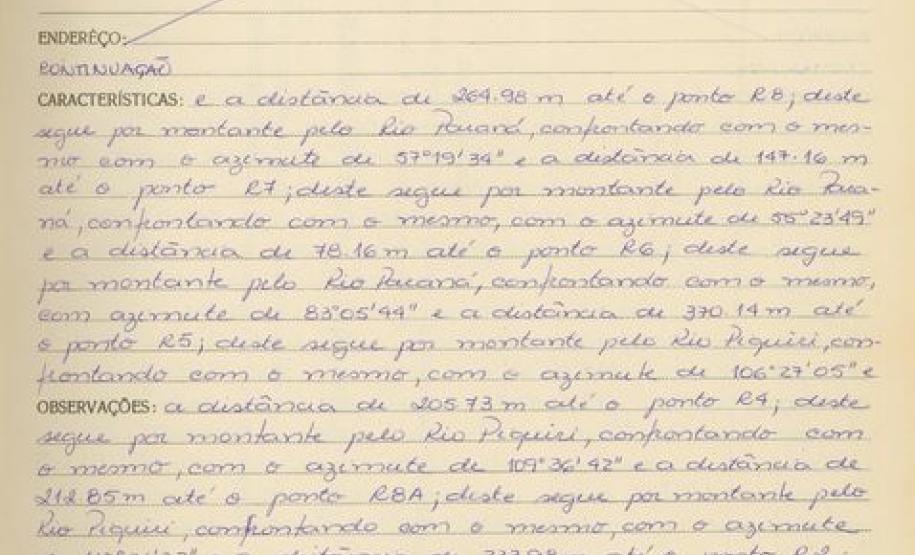 ENDERÊÇO:
CONTINUAÇÃO
CARACTERÍSTICAS: e a distância de 264.98 m até o ponto R8; deste
segue por montante pelo Rio Paraná, confrontando com o mes-
mo com o azimute de 57°19'34" e a distância de 147.16 m
até o ponto R7; deste segue por montante pelo Rio Para-
ná, confrontando com o mesmo, com o azimute de 55°23'49"
e a distância de 78.16 m até o ponto R6; deste segue
por montante pelo Rio Paraná, confrontando com o mesmo,
com azimute de 83°05'44" e a distância de 370.14 m até
o ponto R5; deste segue por montante pelo Rio Piquiri, con-
frontando com o mesmo, com o azimute de 106°27'05" e
OBSERVAÇÕES: a distância de 205.73 m até o ponto R4; deste
segue por montante pelo Rio Piquiri, confrontando com
o mesmo, com o azimute de 109°36'42" e a distância de
212.85 m até o ponto R8A; deste segue por montante pelo
Rio Piquiri, confrontando com o mesmo, com o azimute
e a distância de até o ponto